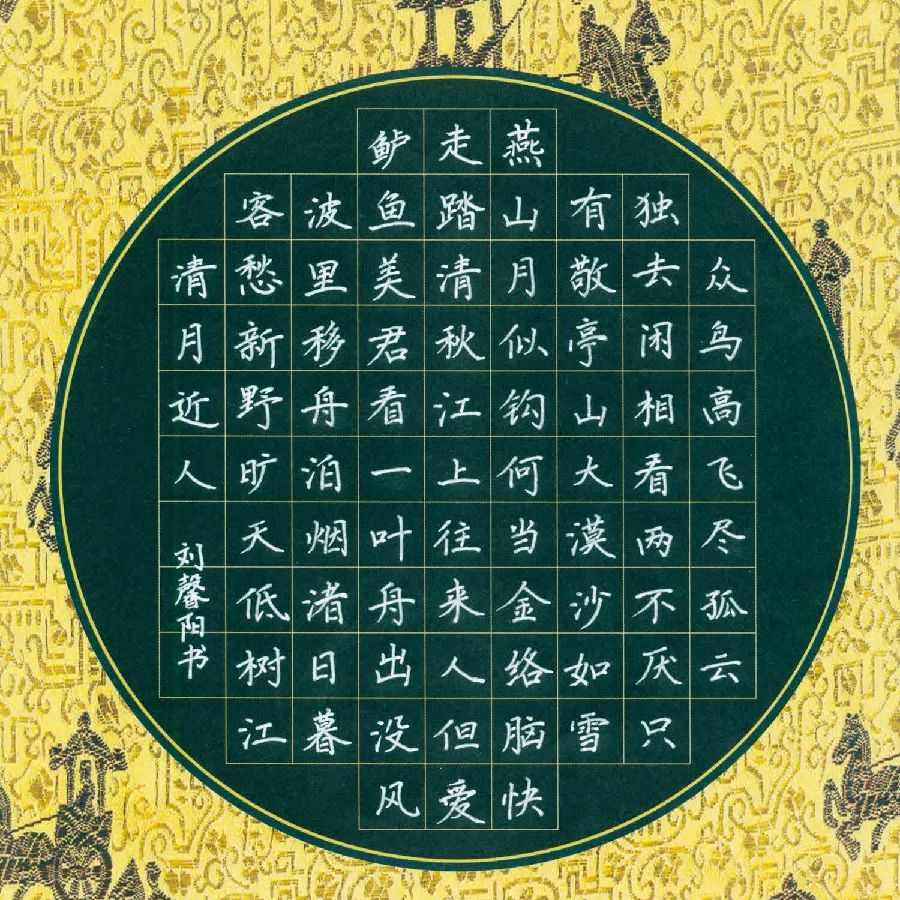 众鸟高飞尽孤云
独去闲相看两不厌只
有敬亭山大漠沙如雪
燕山月似钩何当金络脑快
走踏清秋江上往来人但爱
鲈鱼美君看一叶舟出没风
波里移舟泊烟渚日暮
客愁新野旷天低树江
清月近人
刘馨阳书